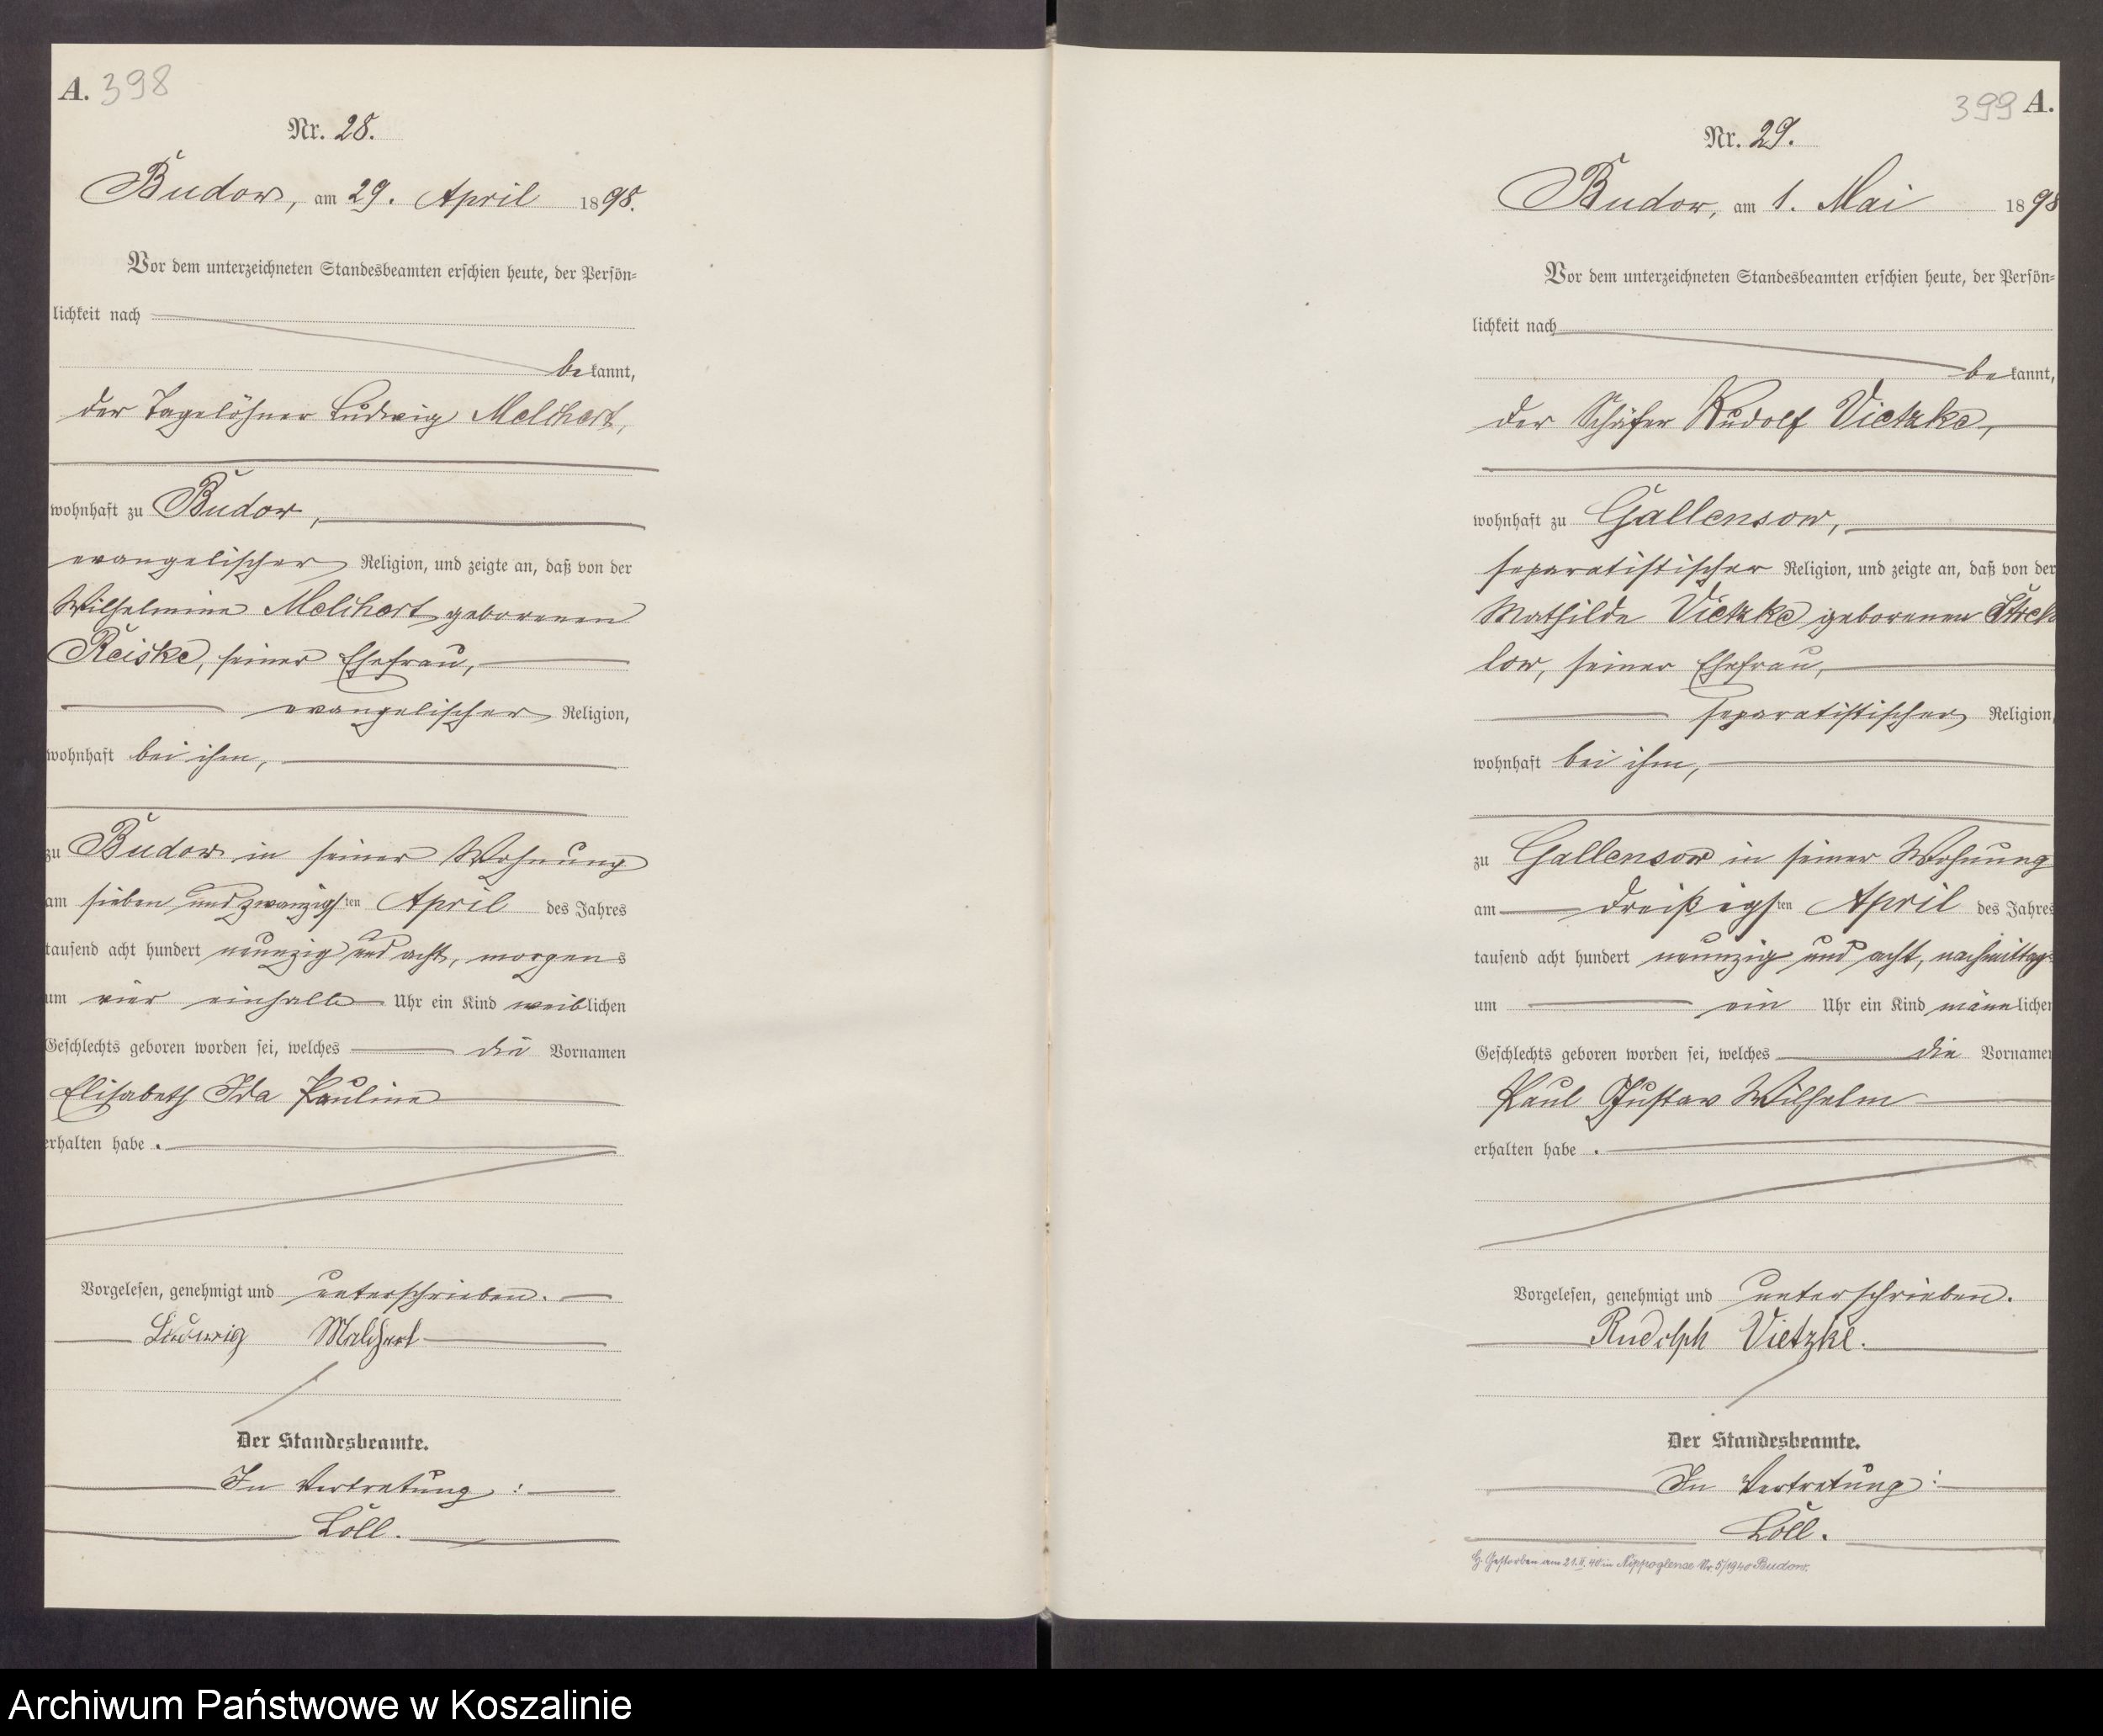 A. 398
Nr. 28.
Budow, am 29. April 1898.
Vor dem unterzeichneten Standesbeamten erschien heute, der Persön=
lichkeit nach
bekannt,
der Tagelöhner Ludwig Melchert,
wohnhaft zu Budow,
evangelischer Religion, und zeigte an, daß von der
Wilhelmine Melchert geborenen
Reiske, seiner Ehefrau,
evangelischer Religion,
wohnhaft bei ihm,
zu Budow in seiner Wohnung
am sieben und zwanzigsten April des Jahres
tausend acht hundert neunzig und acht, morgens
um vier einhalb Uhr ein Kind weiblichen
Geschlechts geboren worden sei, welches die Vornamen
Elisabeth Ida Pauline
erhalten habe.
Vorgelesen, genehmigt und unterschrieben.
Ludwig Malchert
Der Standesbeamte.
In Vertretung:
Löll.
399 A.
Nr. 29.
Budow, am 1. Mai 1898
Vor dem unterzeichneten Standesbeamten erschien heute, der Persön=
lichkeit nach
bekannt,
der Schäfer Rudolf Vietzke,
wohnhaft zu Gallensow,
separatistischer Religion, und zeigte an, daß von der
Mathilde Vietzke geborenen Strek
low, seiner Ehefrau,
separatistischer Religion,
wohnhaft bei ihm,
zu Gallensow in seiner Wohnung
am dreißigsten April des Jahres
tausend acht hundert neunzig und acht, nachmittags
um ein Uhr ein Kind männlichen
Geschlechts geboren worden sei, welches die Vornamen
Paul Gustav Wilhelm
erhalten habe.
Vorgelesen, genehmigt und unterschrieben.
Rudolph Vietzke.
Der Standesbeamte.
In Vertretung:
Löll.
G. Gestorben am 21.II.40 in Nippoglense Nr. 5/1940 Budow.
Archiwum Państwowe w Koszalinie